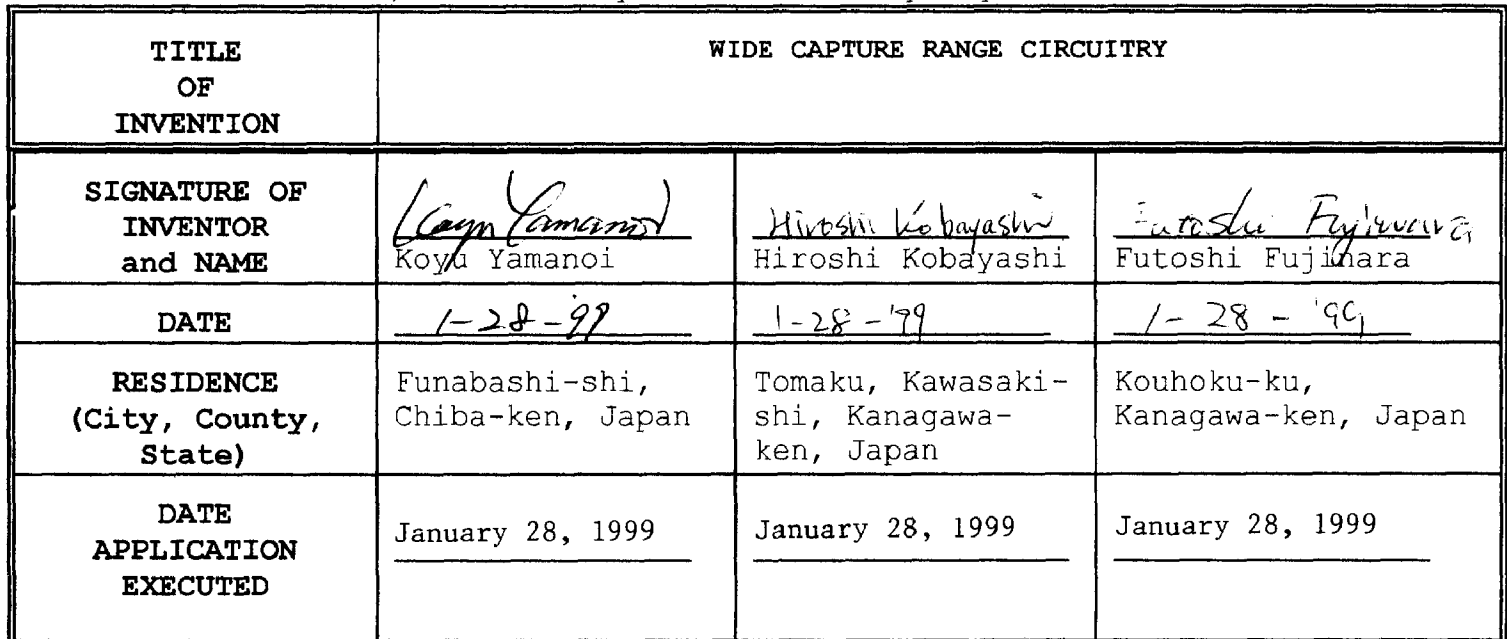 TITLE
OF
INVENTION
WIDE CAPTURE RANGE CIRCUITRY
SIGNATURE OF
INVENTOR
and NAME
Koyu Yamanoi
Koyu Yamanoi
Hiroshi Kobayashi
Hiroshi Kobayashi
Futoshi Fujiwara
Futoshi Fujihara
DATE
1-28-'99
1-28-'99
1-28-'99
RESIDENCE
(City, County,
State)
Funabashi-shi,
Chiba-ken, Japan
Tomaku, Kawasaki-
shi, Kanagawa-
ken, Japan
Kouhoku-ku,
Kanagawa-ken, Japan
DATE
APPLICATION
EXECUTED
January 28, 1999
January 28, 1999
January 28, 1999